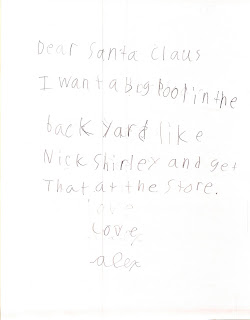 Dear Santa Claus
I want a big pool in the
back yard like
Nick Shirley and get
That at the Store.
Love
alex